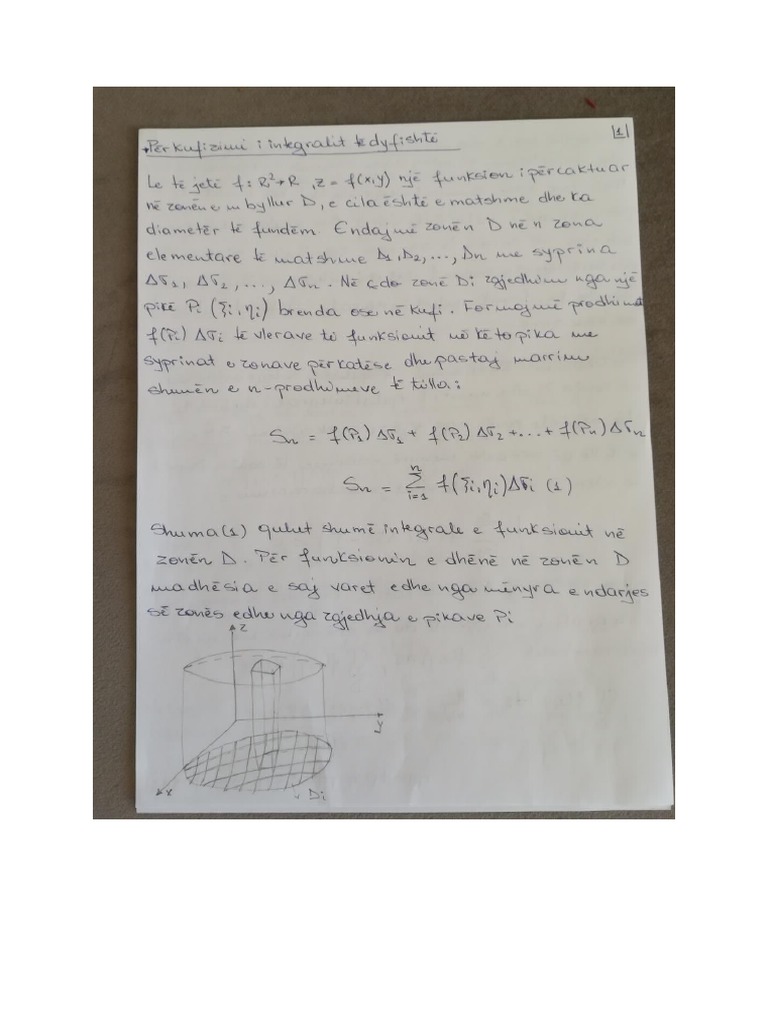 Përkufizimi i integralit të dyfishtë
1
Le të jetë f: R²→R, z = f(x,y) një funksion i përcaktuar
në zonën e mbyllur D, e cila është e matshme dhe ka
diametër të fundëm. Endajmë zonën D në n zona
elementare të matshme D₁, D₂, ..., Dn me syprina
Δσ₁, Δσ₂, ..., Δσn. Në çdo zonë Di zgjedhim nga një
pikë Pi (ξi, ηi) brenda ose në kufi. Formojmë prodhimet
f(Pi) Δσi të vlerave të funksionit në këto pika me
syprinat e zonave përkatëse dhe pastaj marrim
shumën e n-prodhimeve të tilla:
Sn = f(P₁) Δσ₁ + f(P₂) Δσ₂ + ... + f(Pn) Δσn
Sn = Σ_{i=1}^{n} f(ξi, ηi) Δσi (1)
Shuma (1) quhet shumë integrale e funksionit në
zonën D. Për funksionin e dhënë në zonën D
madhësia e saj varet edhe nga mënyra e ndarjes
së zonës edhe nga zgjedhja e pikave Pi
z
y
x
Di